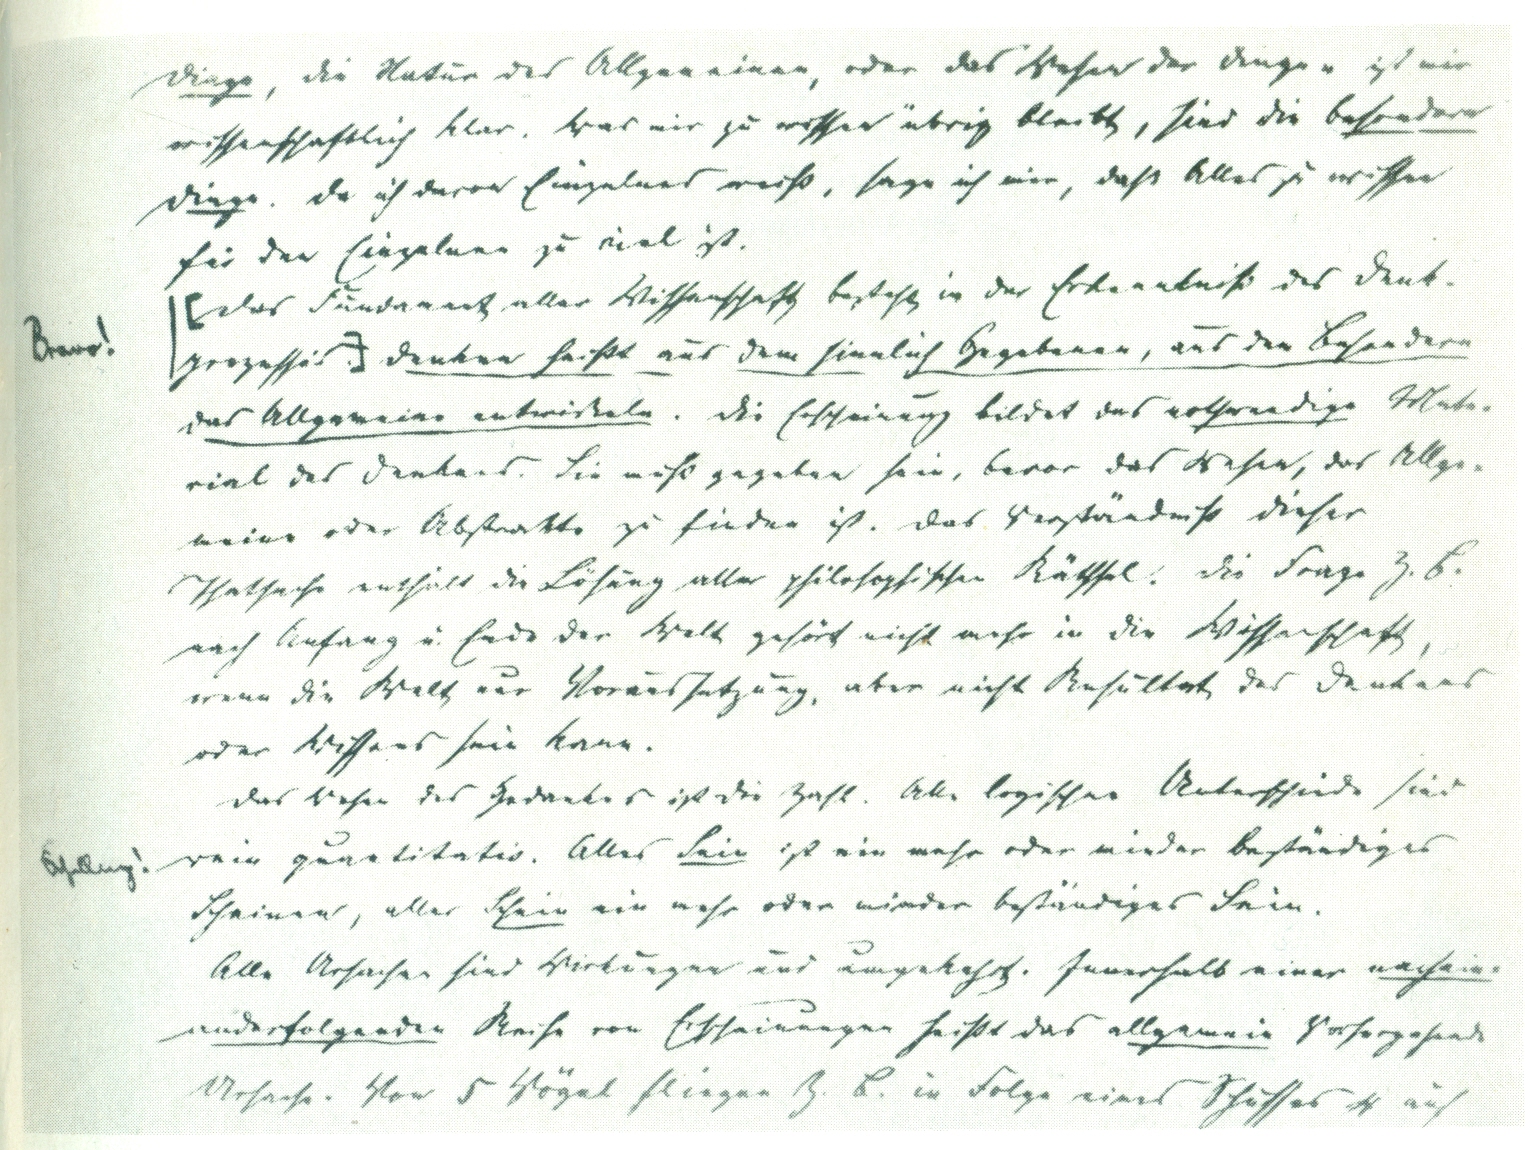 Dinge, die Natur des Allgemeinen, oder das Wesen der Dinge ist mir
wissenschaftlich klar. Was mir zu wissen übrig bleibt, sind die besondern
Dinge. Da ich davon Einzelnes weiß, sage ich mir, daß Alles zu wissen
für den Einzelnen zu viel ist.
[Das Fundament aller Wissenschaft besteht in der Erkenntniß des Denk-
Bravo!
prozesses.] Denken heißt aus dem sinnlich Gegebenen, aus dem Besondern
das Allgemeine entwickeln. Die Erscheinung bildet das nothwendige Mate-
rial des Denkens. Sie muß gegeben sein, bevor das Wesen, das Allge-
meine oder Abstrakte zu finden ist. Das Verständniß dieser
Thatsache enthält die Lösung aller philosophischen Räthsel. Die Frage z. B.
nach Anfang u. Ende der Welt gehört nicht mehr in die Wissenschaft,
wenn die Welt nur Voraussetzung, aber nicht Resultat des Denkens
oder Wissens sein kann.
Das Wesen des Gedankes ist die Zahl. Alle logischen Unterschiede sind
Schelling!
rein quantitativ. Alles Sein ist ein mehr oder minder beständiges
Scheinen, aller Schein ein mehr oder minder beständiges Sein.
Alle Ursachen sind Wirkungen und umgekehrt. Innerhalb einer nachein-
anderfolgenden Reihe von Erscheinungen heißt das allgemein Vorhergehende
Ursache. Von 5 Vögel fliegen z. B. in Folge eines Schusses 4 auf